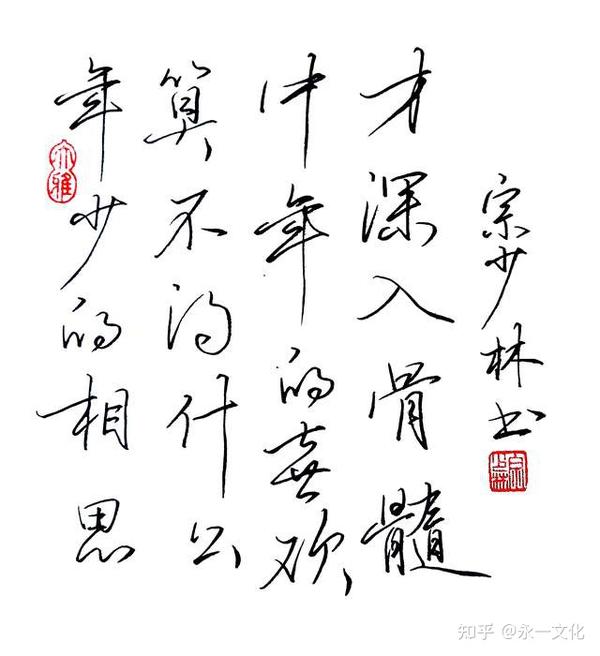 年少的相思
算不得什么
中年的喜欢
才深入骨髓
宗少林书
知乎 @永一文化